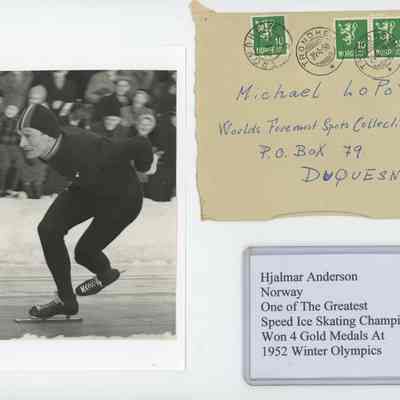 10
NORGE
TRONDHE
Michael LoPo
Worlds Foremost Spots Collectio
P.O. BOX 79
DUQUESN
Hjalmar Anderson
Norway
One of The Greatest
Speed Ice Skating Champi
Won 4 Gold Medals At
1952 Winter Olympics